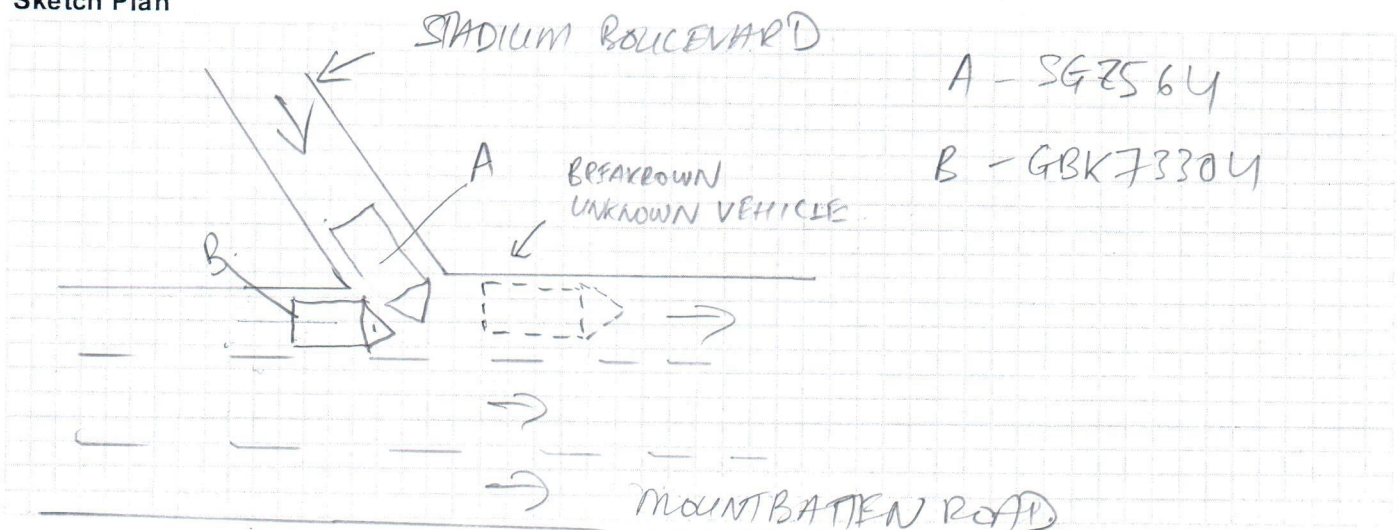 Sketch Plan
STADIUM BOULEVARD
A - SGZ564U
B - GBK7330U
A
BREAKDOWN
UNKNOWN VEHICLE
B
MOUNTBATTEN ROAD